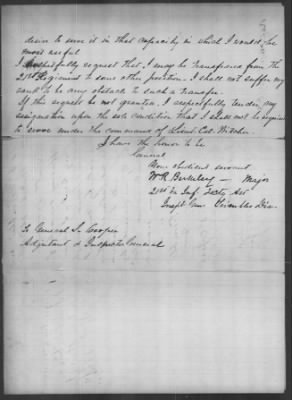 desire to serve it in that capacity in which I would be
most useful
I respectfully request that I may be transferred from the
21st Regiment to some other position. I shall not suffer my
rank to be any obstacle to such a transfer.
If this request be not granted, I respectfully tender my
resignation upon the sole condition that I shall not be required
to serve under the command of Lieut Col. Witcher.
I have the honor to be
General
Your obedient servant
W R Berkeley — Major
21st Va Inf
Inspt Gen
To General S. Cooper
Adjutant & Inspector General